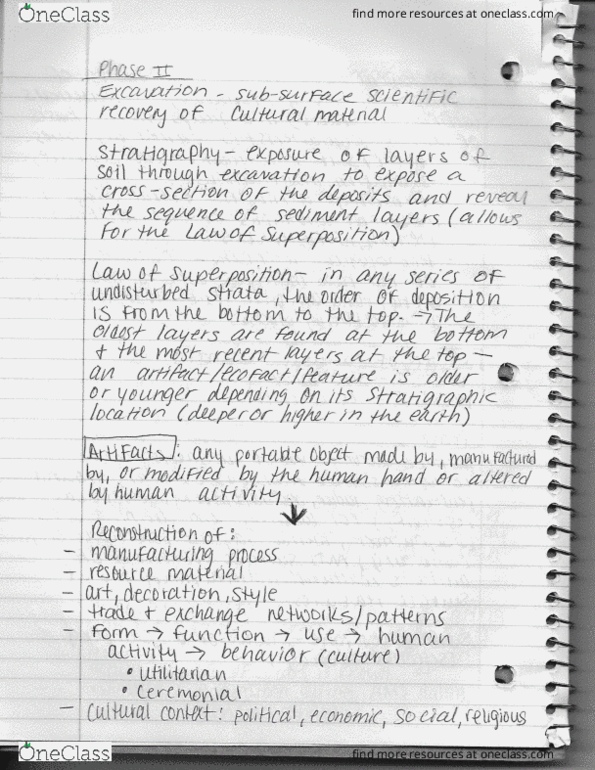 OneClass
find more resources at oneclass.com
Phase II
Excavation - sub-surface scientific
recovery of cultural material
Stratigraphy - exposure of layers of
soil through excavation to expose a
cross-section of the deposits and reveal
the sequence of sediment layers (allows
for the Law of Superposition)
Law of Superposition - in any series of
undisturbed strata, the order of deposition
is from the bottom to the top. → The
oldest layers are found at the bottom
+ the most recent layers at the top -
an artifact/ecofact/feature is older
or younger depending on its stratigraphic
location (deeper or higher in the earth)
Artifacts: any portable object made by, manufactured
by, or modified by the human hand or altered
by human activity
↓
Reconstruction of:
- manufacturing process
- resource material
- art, decoration, style
- trade + exchange networks/patterns
- form → function → use → human
activity → behavior (culture)
• utilitarian
• ceremonial
- cultural context: political, economic, social, religious
OneClass
find more resources at oneclass.com